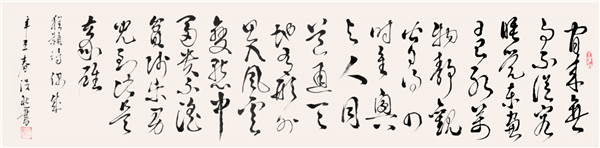 閒來無
事不從容
睡覺東窗
日已紅萬
物靜觀
皆自得四
時佳興
與人同
道通天
地有形外
思入風雲
變態中
富貴不淫
貧賤樂男
兒到此是
豪雄
程顥詩偶成
辛丑春書